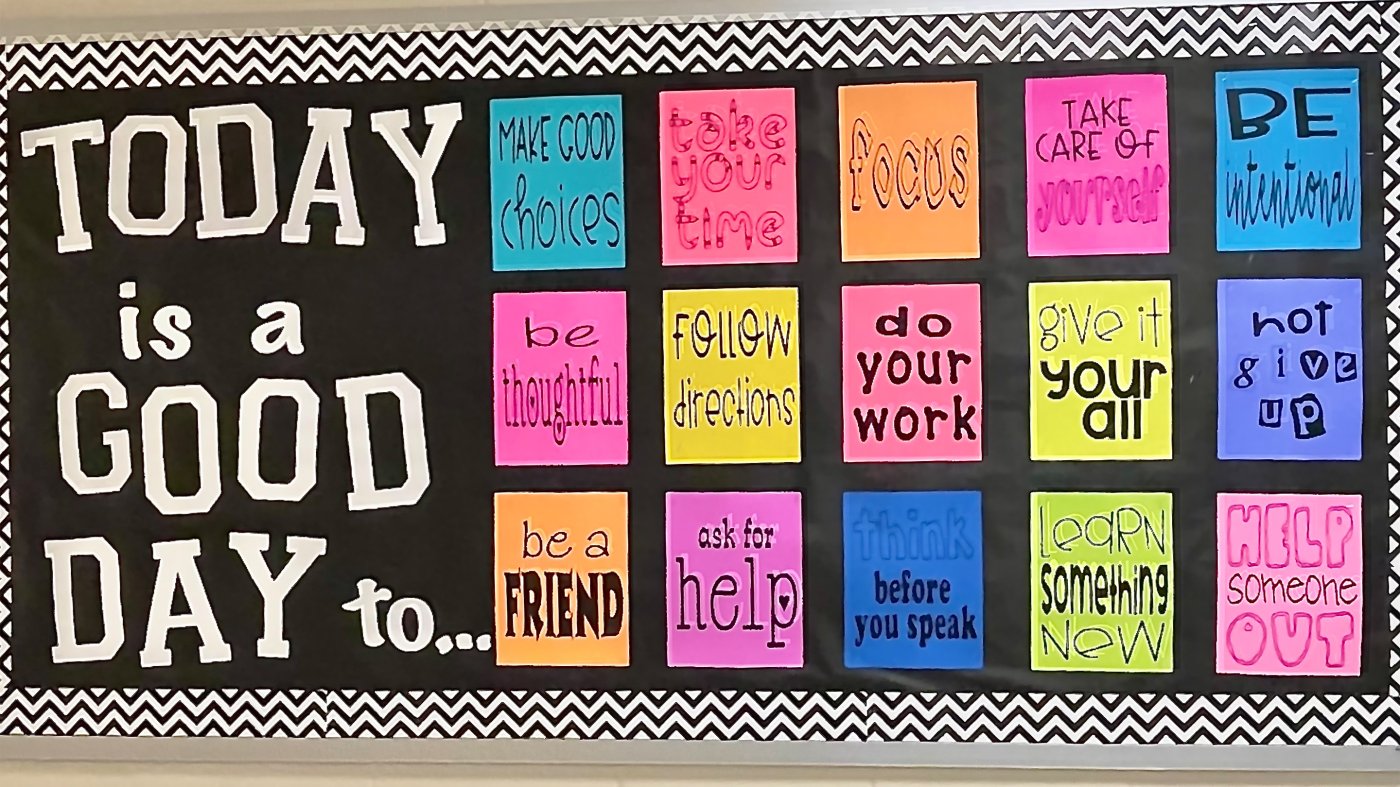 TODAY
is a
GOOD
DAY to...
MAKE GOOD
choices
take
your
time
focus
TAKE
CARE OF
yourself
BE
intentional
be
thoughtful
FOLLOW
directions
do
your
work
give it
your
all
not
give
up
be a
FRIEND
ask for
help
think
before
you speak
LeaRN
something
NeW
HELP
someone
OUT